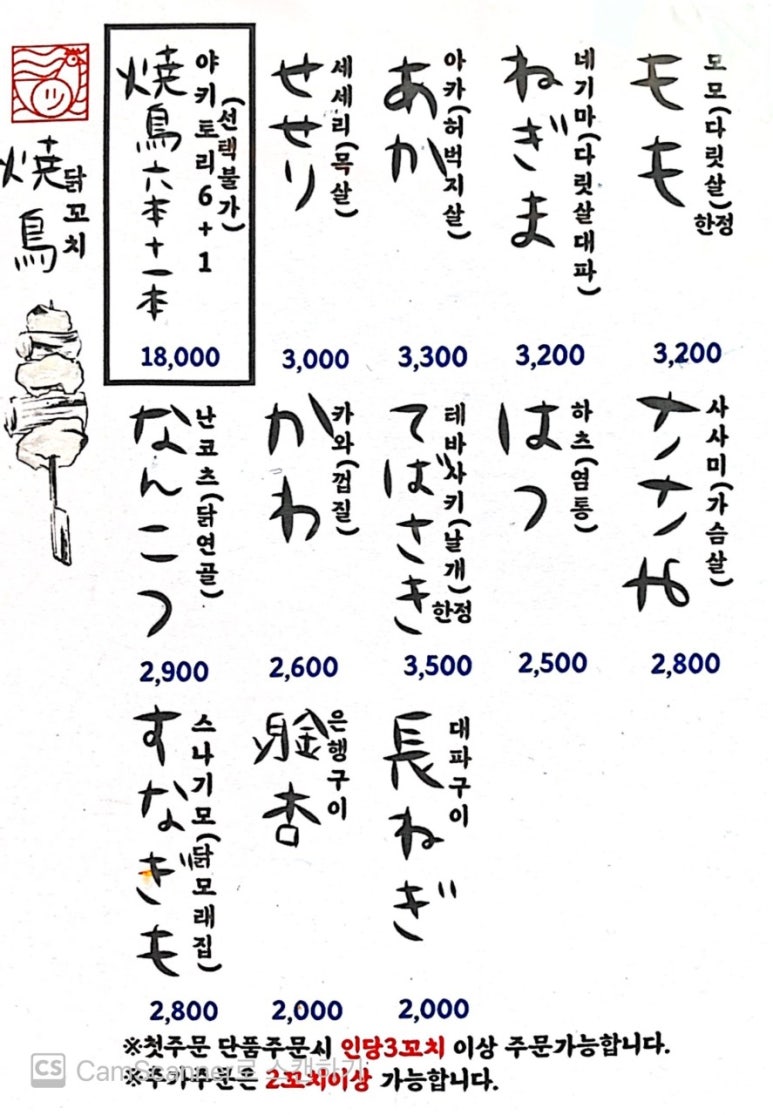 焼鳥
닭꼬치
焼鳥六本十一本
야키토리6+1
(선택불가)
18,000
せせり
세세리(목살)
3,000
あか
아카(허벅지살)
3,300
ねぎま
네기마(다릿살대파)
3,200
もも
모모(다릿살)
한정
3,200
なんこつ
난코츠(닭연골)
2,900
かわ
카와(껍질)
2,600
てばさき
테바사키(날개)
한정
3,500
はつ
하츠(염통)
2,500
ササみ
사사미(가슴살)
2,800
すなぎも
스나기모(닭모래집)
2,800
銀杏
은행구이
2,000
長ねぎ
대파구이
2,000
※첫주문 단품주문시 인당3꼬치 이상 주문가능합니다.
※추가주문은 2꼬치이상 가능합니다.
CS CamScanner로 스캔하기